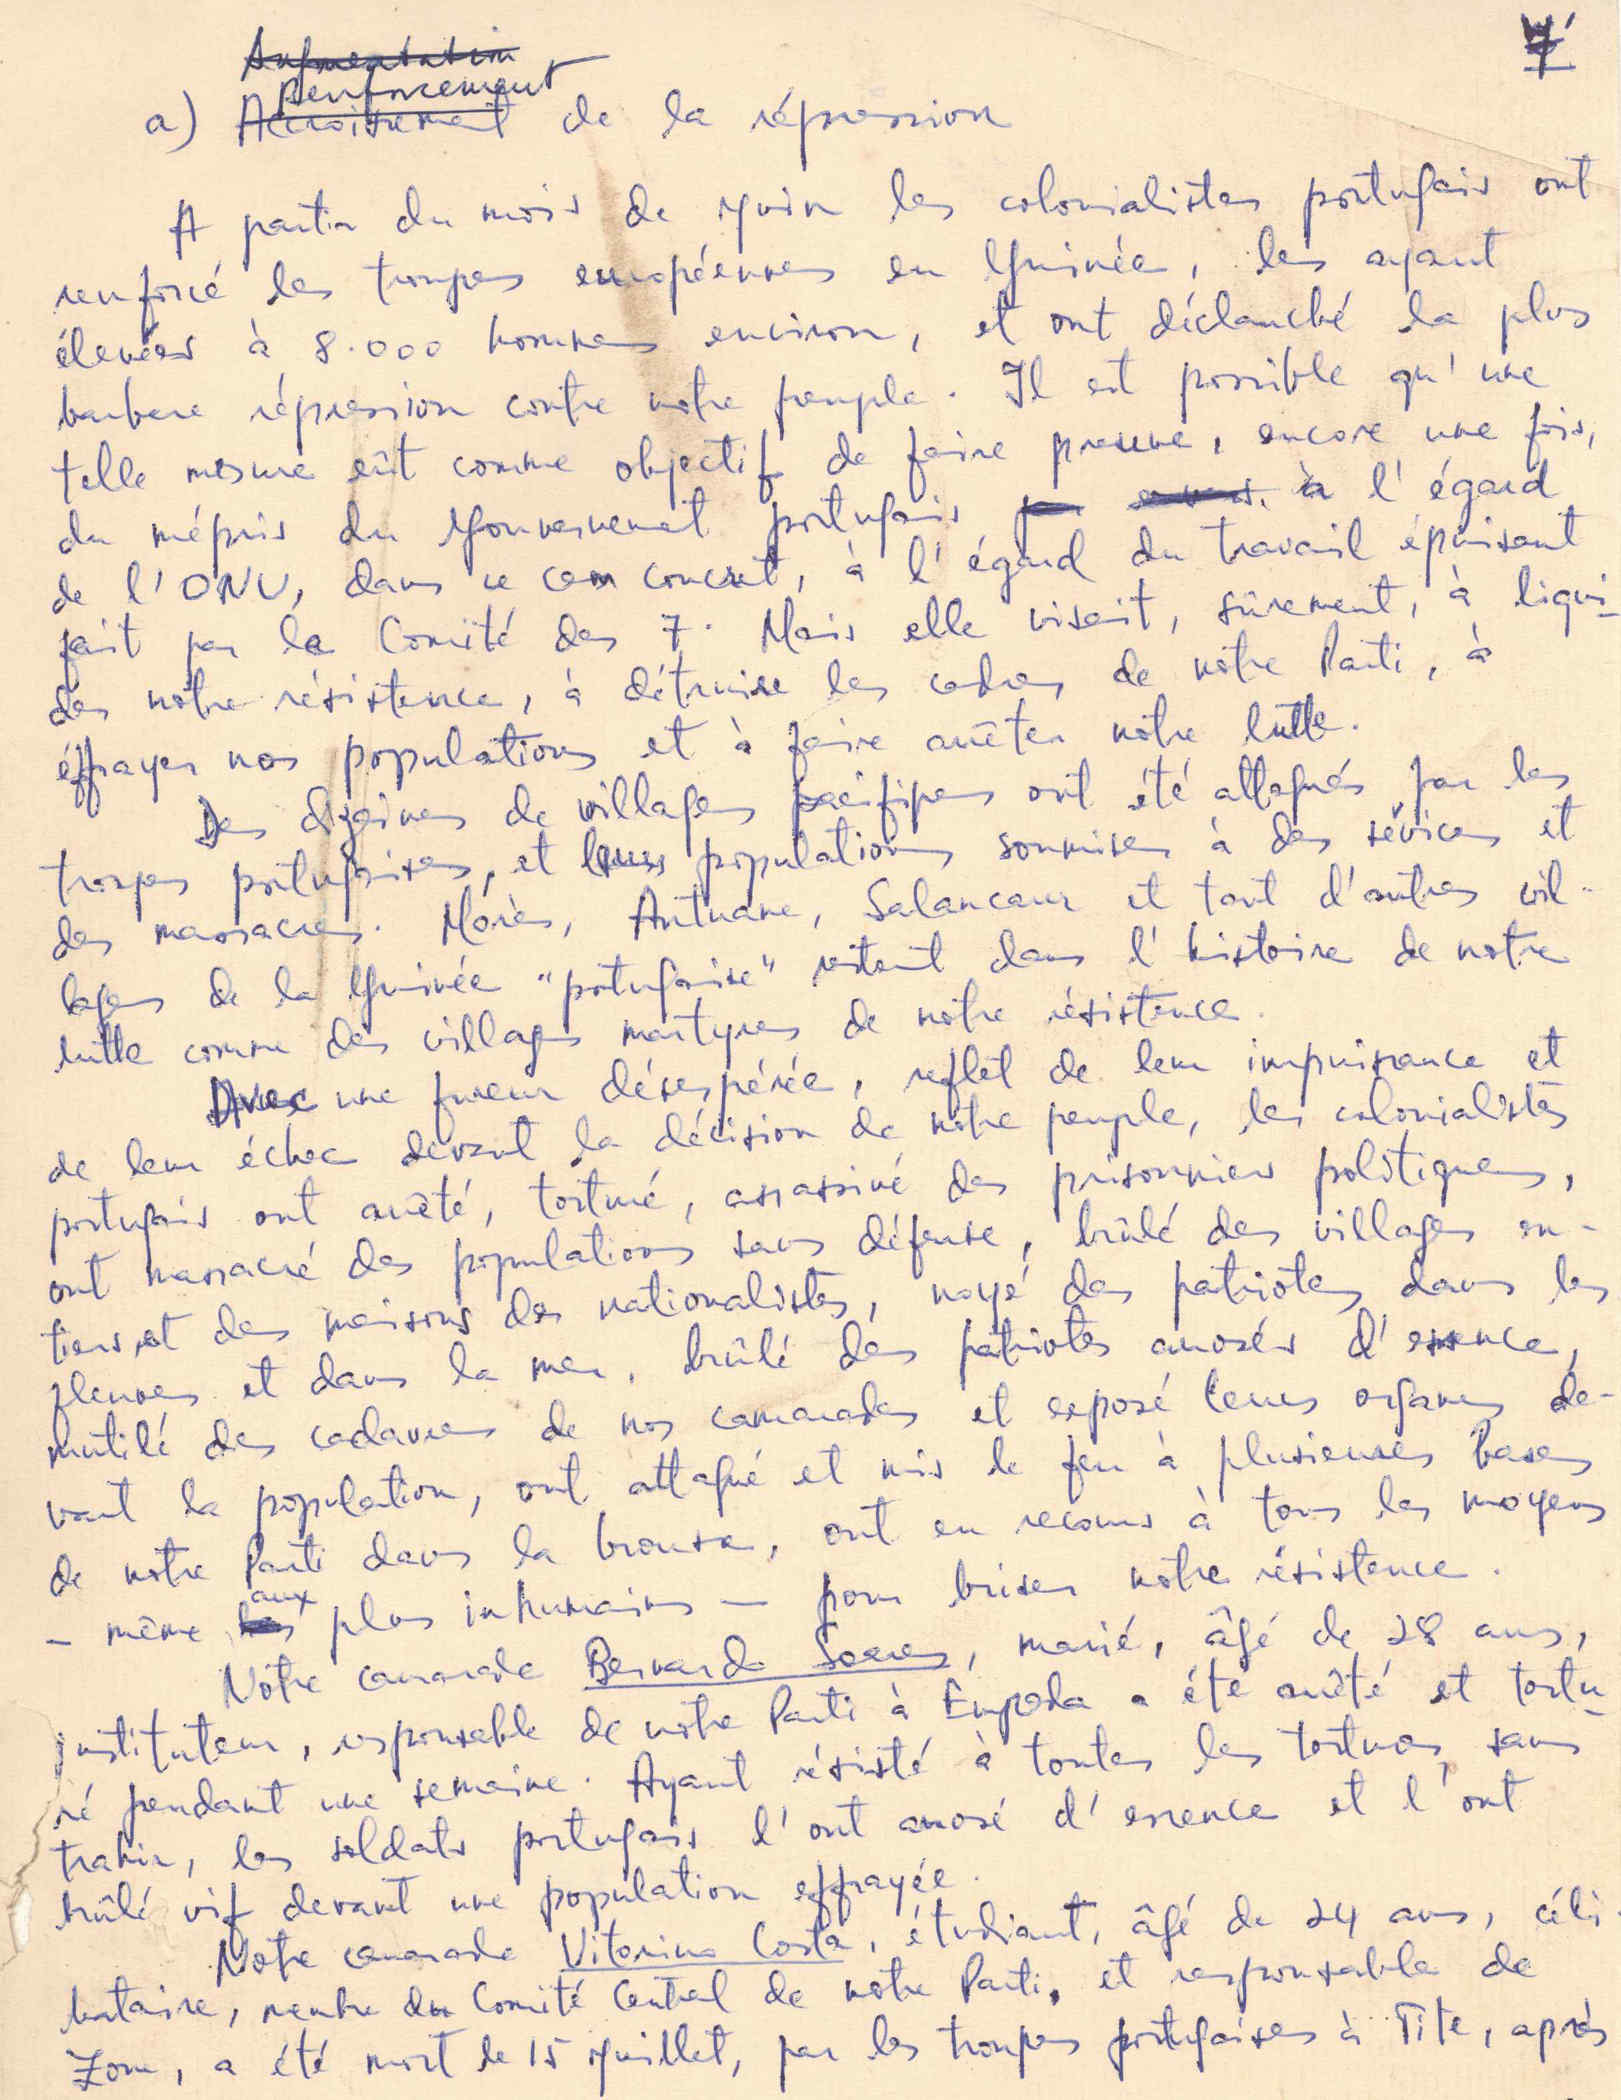 7
Augmentation
Renforcement
a) Accroissement de la répression
A partir du mois de Juin les colonialistes portugais ont
renforcé les troupes européennes en Guinée, les ayant
élevées à 8.000 hommes environ, et ont déclanché la plus
barbare répression contre notre peuple. Il est possible qu'une
telle mesure eût comme objectif de faire preuve, encore une fois,
du mépris du Gouvernement portugais à l'égard
de l'ONU, dans ce cas concret, à l'égard du travail épuisant
fait par le Comité des 7. Mais elle visait, sûrement, à liqui-
der notre résistence, à détruire les cadres de notre Parti, à
éffrayer nos populations et à faire arrêter notre lutte.
Des dizaines de villages pacifiques ont été attaqués par les
troupes portugaises, et leurs populations soumises à des sévices et
des massacres. Morès, Antuane, Salancaur et tant d'autres vil-
lages de la Guinée "portugaise" restent dans l'histoire de notre
lutte comme des villages martyres de notre résistence.
Avec une fureur désespérée, reflèt de leur impuissance et
de leur échec devant la décision de notre peuple, les colonialistes
portugais ont arrêté, torturé, assassiné des prisonniers politiques,
ont massacré des populations sans défense, brûlé des villages en-
tiers et des maisons des nationalistes, noyé des patriotes dans les
fleuves et dans la mer, brûlé des patriotes arrosés d'essence,
mutilé des cadavres de nos camarades et exposé leurs organes de-
vant la population, ont attaqué et mis le feu à plusieures bases
de notre Parti dans la brousse, ont eu recours à tous les moyens
- même aux plus inhumains - pour briser notre résistence.
Notre camarade Bernardo Soares, marié, âgé de 28 ans,
instituteur, responsable de notre Parti à Empada a été arrêté et tortu-
ré pendant une semaine. Ayant résisté à toutes les tortures, sans
trahir, les soldats portugais l'ont arrosé d'essence et l'ont
brûlé vif devant une population effrayée.
Notre camarade Vitorino Costa, étudiant, âgé de 24 ans, céli-
bataire, membre du Comité Central de notre Parti, et responsable de
Zone, a été mort le 15 Juillet, par les troupes portugaises à Tite, après